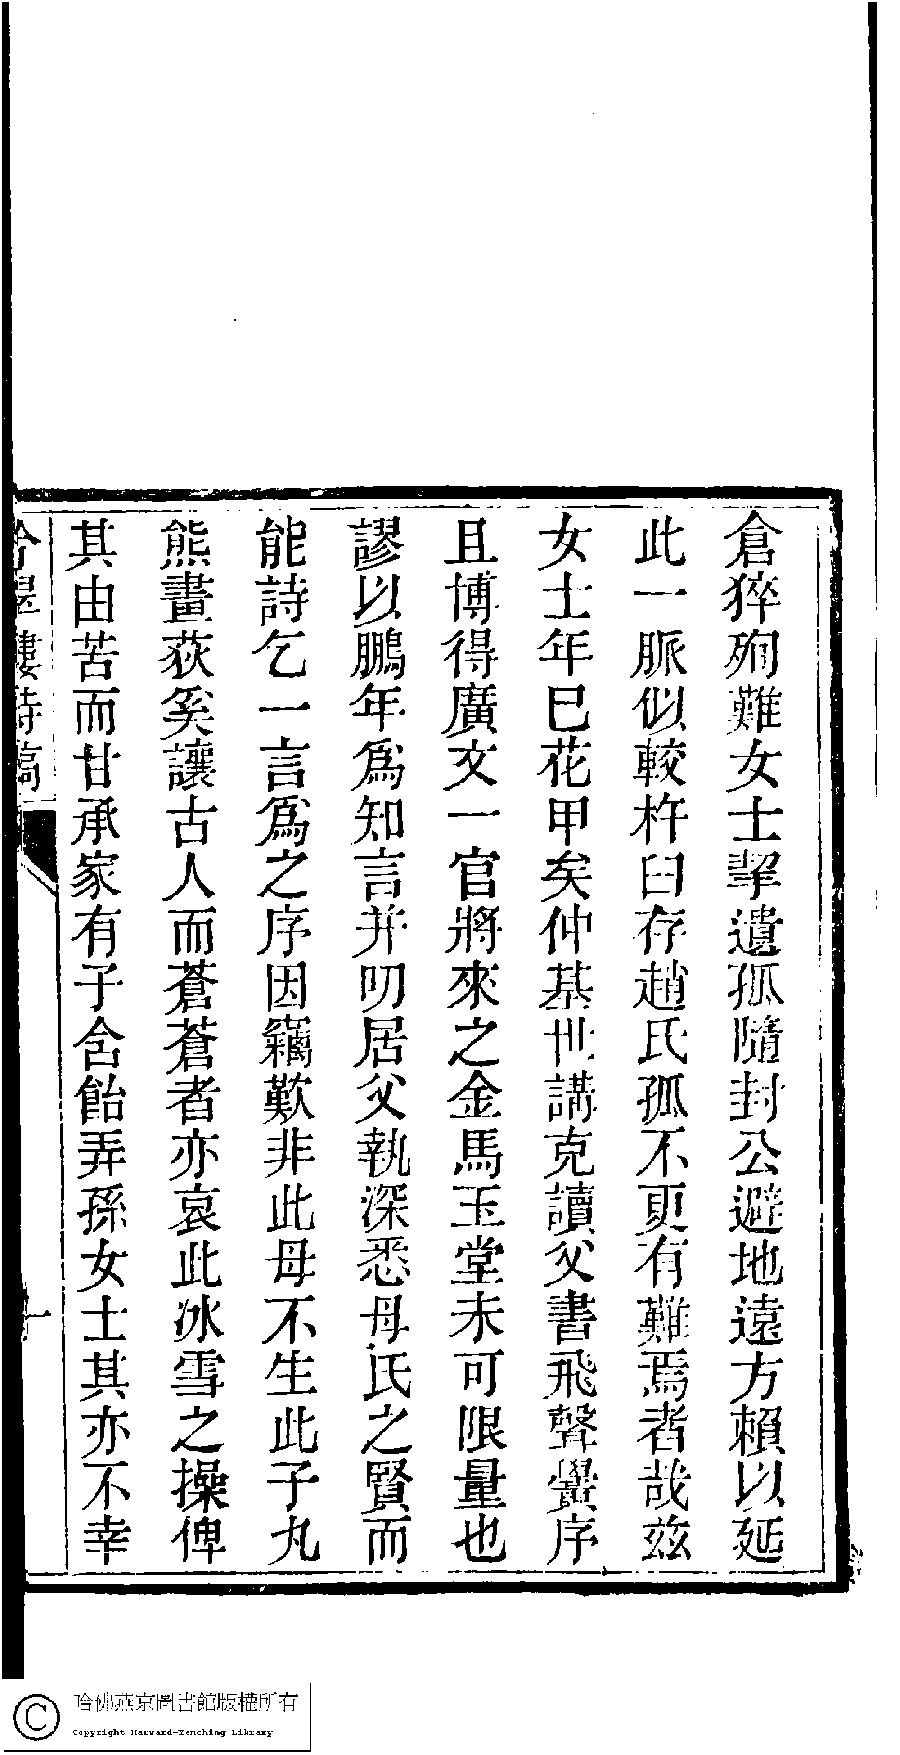 倉猝殉難女士挈遺孤隨封公避地遠方賴以延
此一脈似較杵臼存趙氏孤不更有難焉者哉茲
女士年巳花甲矣仲基世講克讀父書飛聲黌序
且博得廣文一官將來之金馬玉堂未可限量也
謬以鵬年爲知言并叨居父執深悉母氏之賢而
能詩乞一言爲之序因竊歎非此母不生此子丸
熊畫荻奚讓古人而蒼蒼者亦哀此冰雪之操俾
其由苦而甘承家有子含飴弄孫女士其亦不幸
樓詩稿
哈佛燕京圖書館版權所有
Copyright Harvard-Yenching Library